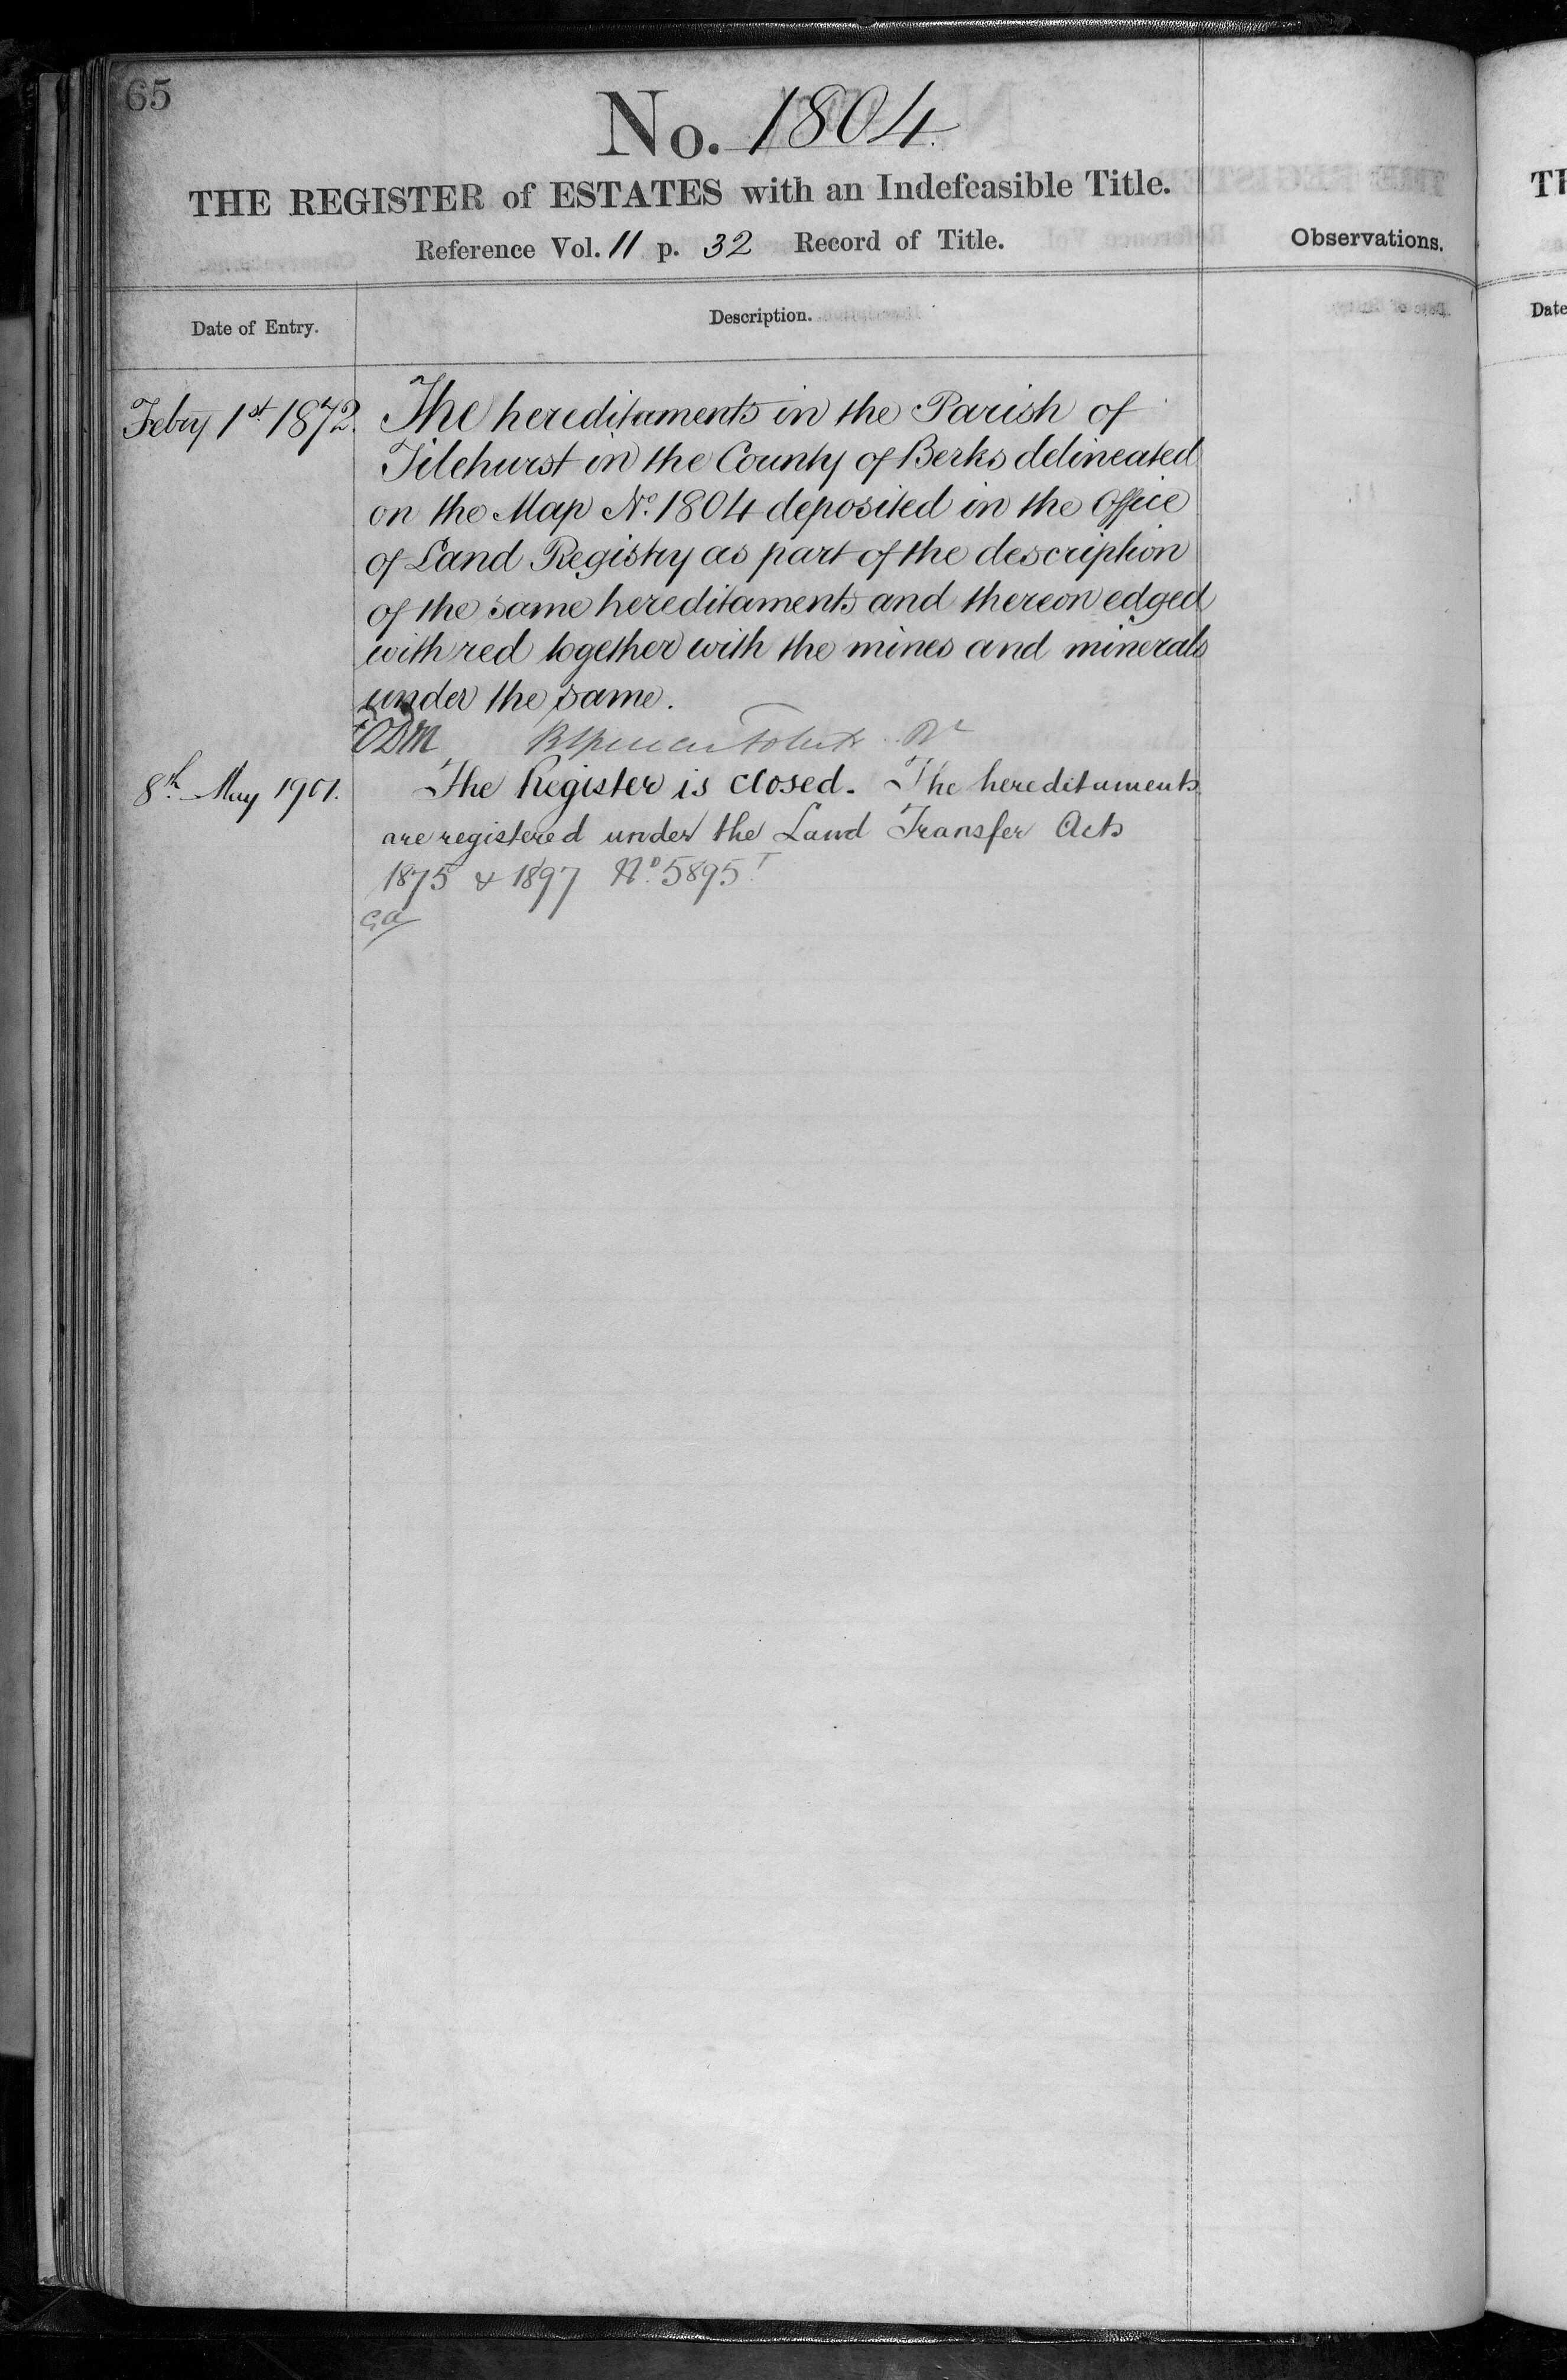 65
No. 1804.
THE REGISTER of ESTATES with an Indefeasible Title.
Reference Vol. 11 p. 32 Record of Title.
Observations.
Date of Entry.
Description.
Feby 1st 1872.
The hereditaments in the Parish of
Tilehurst in the County of Berks delineated
on the Map No. 1804 deposited in the Office
of Land Registry as part of the description
of the same hereditaments and thereon edged
with red together with the mines and minerals
under the same.
8th May 1901.
The Register is closed. The hereditaments
are registered under the Land Transfer Acts
1875 & 1897 No. 5895
TH
Date